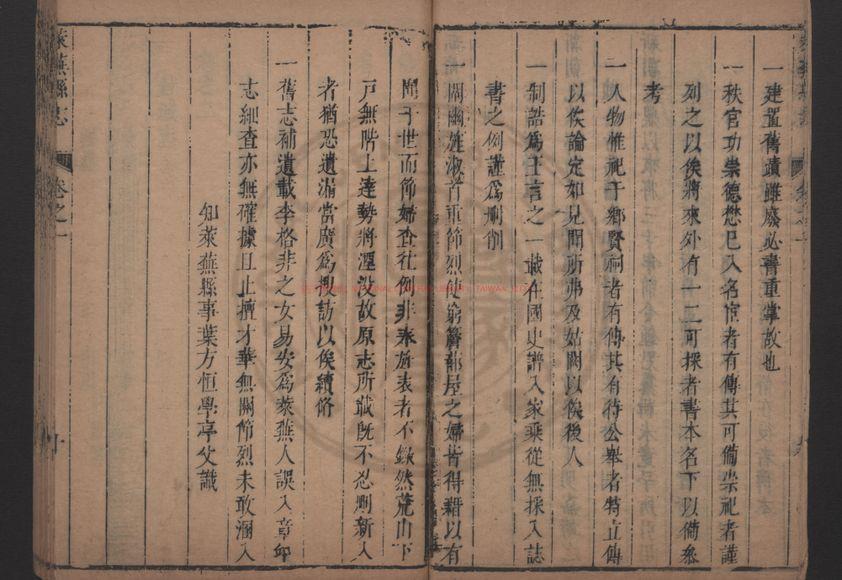 一建置舊蹟雖廢必書重掌故也
一秩官功崇德懋巳入名宦者有傳其可備崇祀者謹
列之以俟將來外有一二可採者書本名下以備叅
考
一人物惟祀于鄉賢祠者有傳其有待公舉者特立傳
以俟論定如見聞所弗及姑闕以俟後人
一制誥爲王言之一載在國史譜入家乘從無採入誌
書之例謹爲刪削
一闡幽旌淑首重節烈使窮簷蔀屋之婦皆得藉以有
聞于世而節婦查往例非奉旌表者不錄然荒山下
戸無階上達勢將湮没故原志所載既不忍刪新入
者猶恐遺漏當廣爲搜訪以俟續脩
一舊志補遺載李格非之女易安爲萊蕪人誤入章邱
志細查亦無確據且止擅才華無關節烈未敢溷入
知萊蕪縣事葉方恒學亭父識
萊蕪縣志
卷之一
十